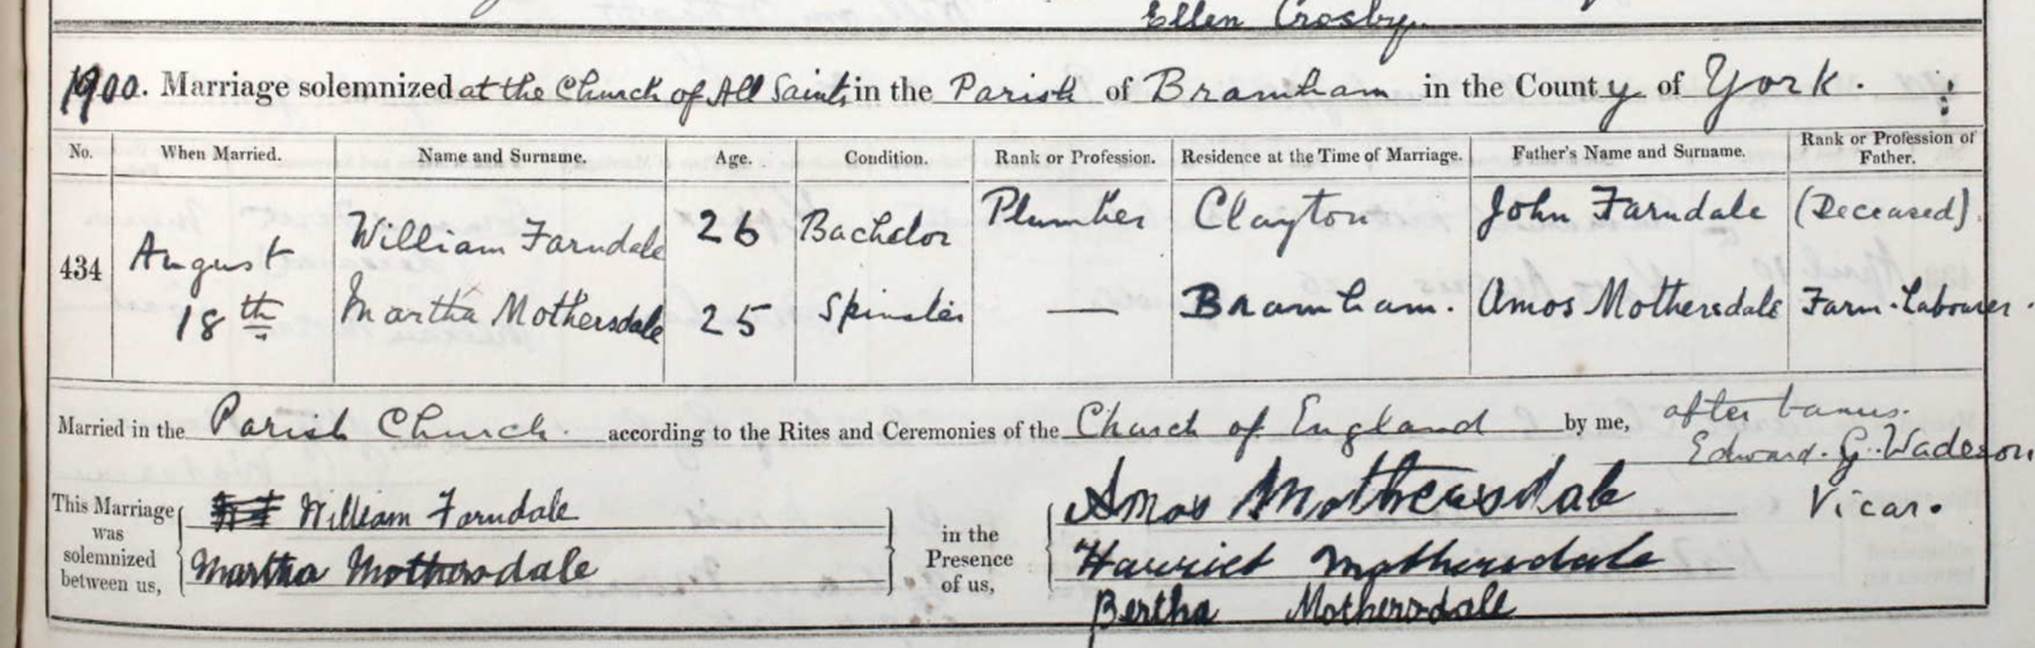 Ellen Crosby.
1900. Marriage solemnized at the Church of All Saints in the Parish of Bramham in the County of York.
No. When Married. Name and Surname. Age. Condition. Rank or Profession. Residence at the Time of Marriage. Father's Name and Surname. Rank or Profession of Father.
434 August 18th William Farndale 26 Bachelor Plumber Clayton John Farndale (Deceased).
Martha Mothersdale 25 Spinster — Bramham. Amos Mothersdale Farm-Labourer.
Married in the Parish Church. according to the Rites and Ceremonies of the Church of England by me, after banns.
Edward. G. Wadeson
Vicar.
This Marriage was solemnized between us, William Farndale
Martha Mothersdale
in the Presence of us, Amos Mothersdale
Harriet Mothersdale
Bertha Mothersdale